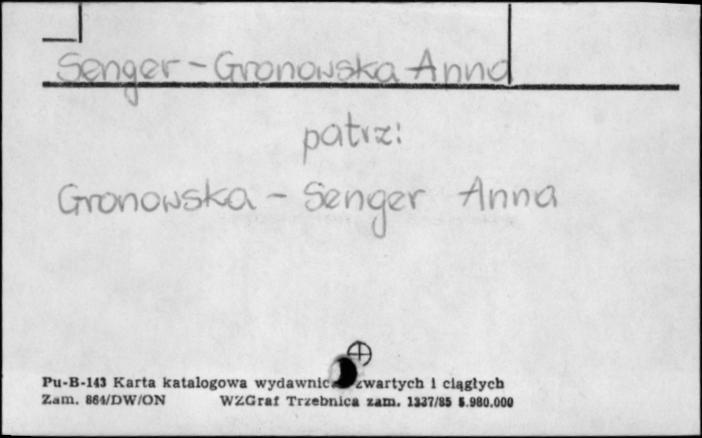 Senger - Gronowska Anna
patrz:
Gronowska - Senger Anna
Pu-B-143 Karta katalogowa wydawnic zwartych i ciągłych
Zam. 864/DW/ON WZGraf Trzebnica zam. 1337/85 5.980.000